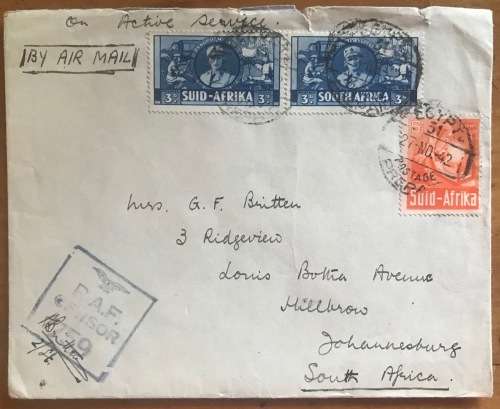 On Active Service.
BY AIR MAIL
3D SUID-AFRIKA 3D
3D SOUTH AFRICA 3D
EGYPT
31
27 NO. 42
POSTAGE
PREPA
Suid-Afrika
Mrs. G. F. Britten
3 Ridgeview
Louis Botha Avenue
Hillbrow
Johannesburg
South Africa.
R.A.F.
CENSOR